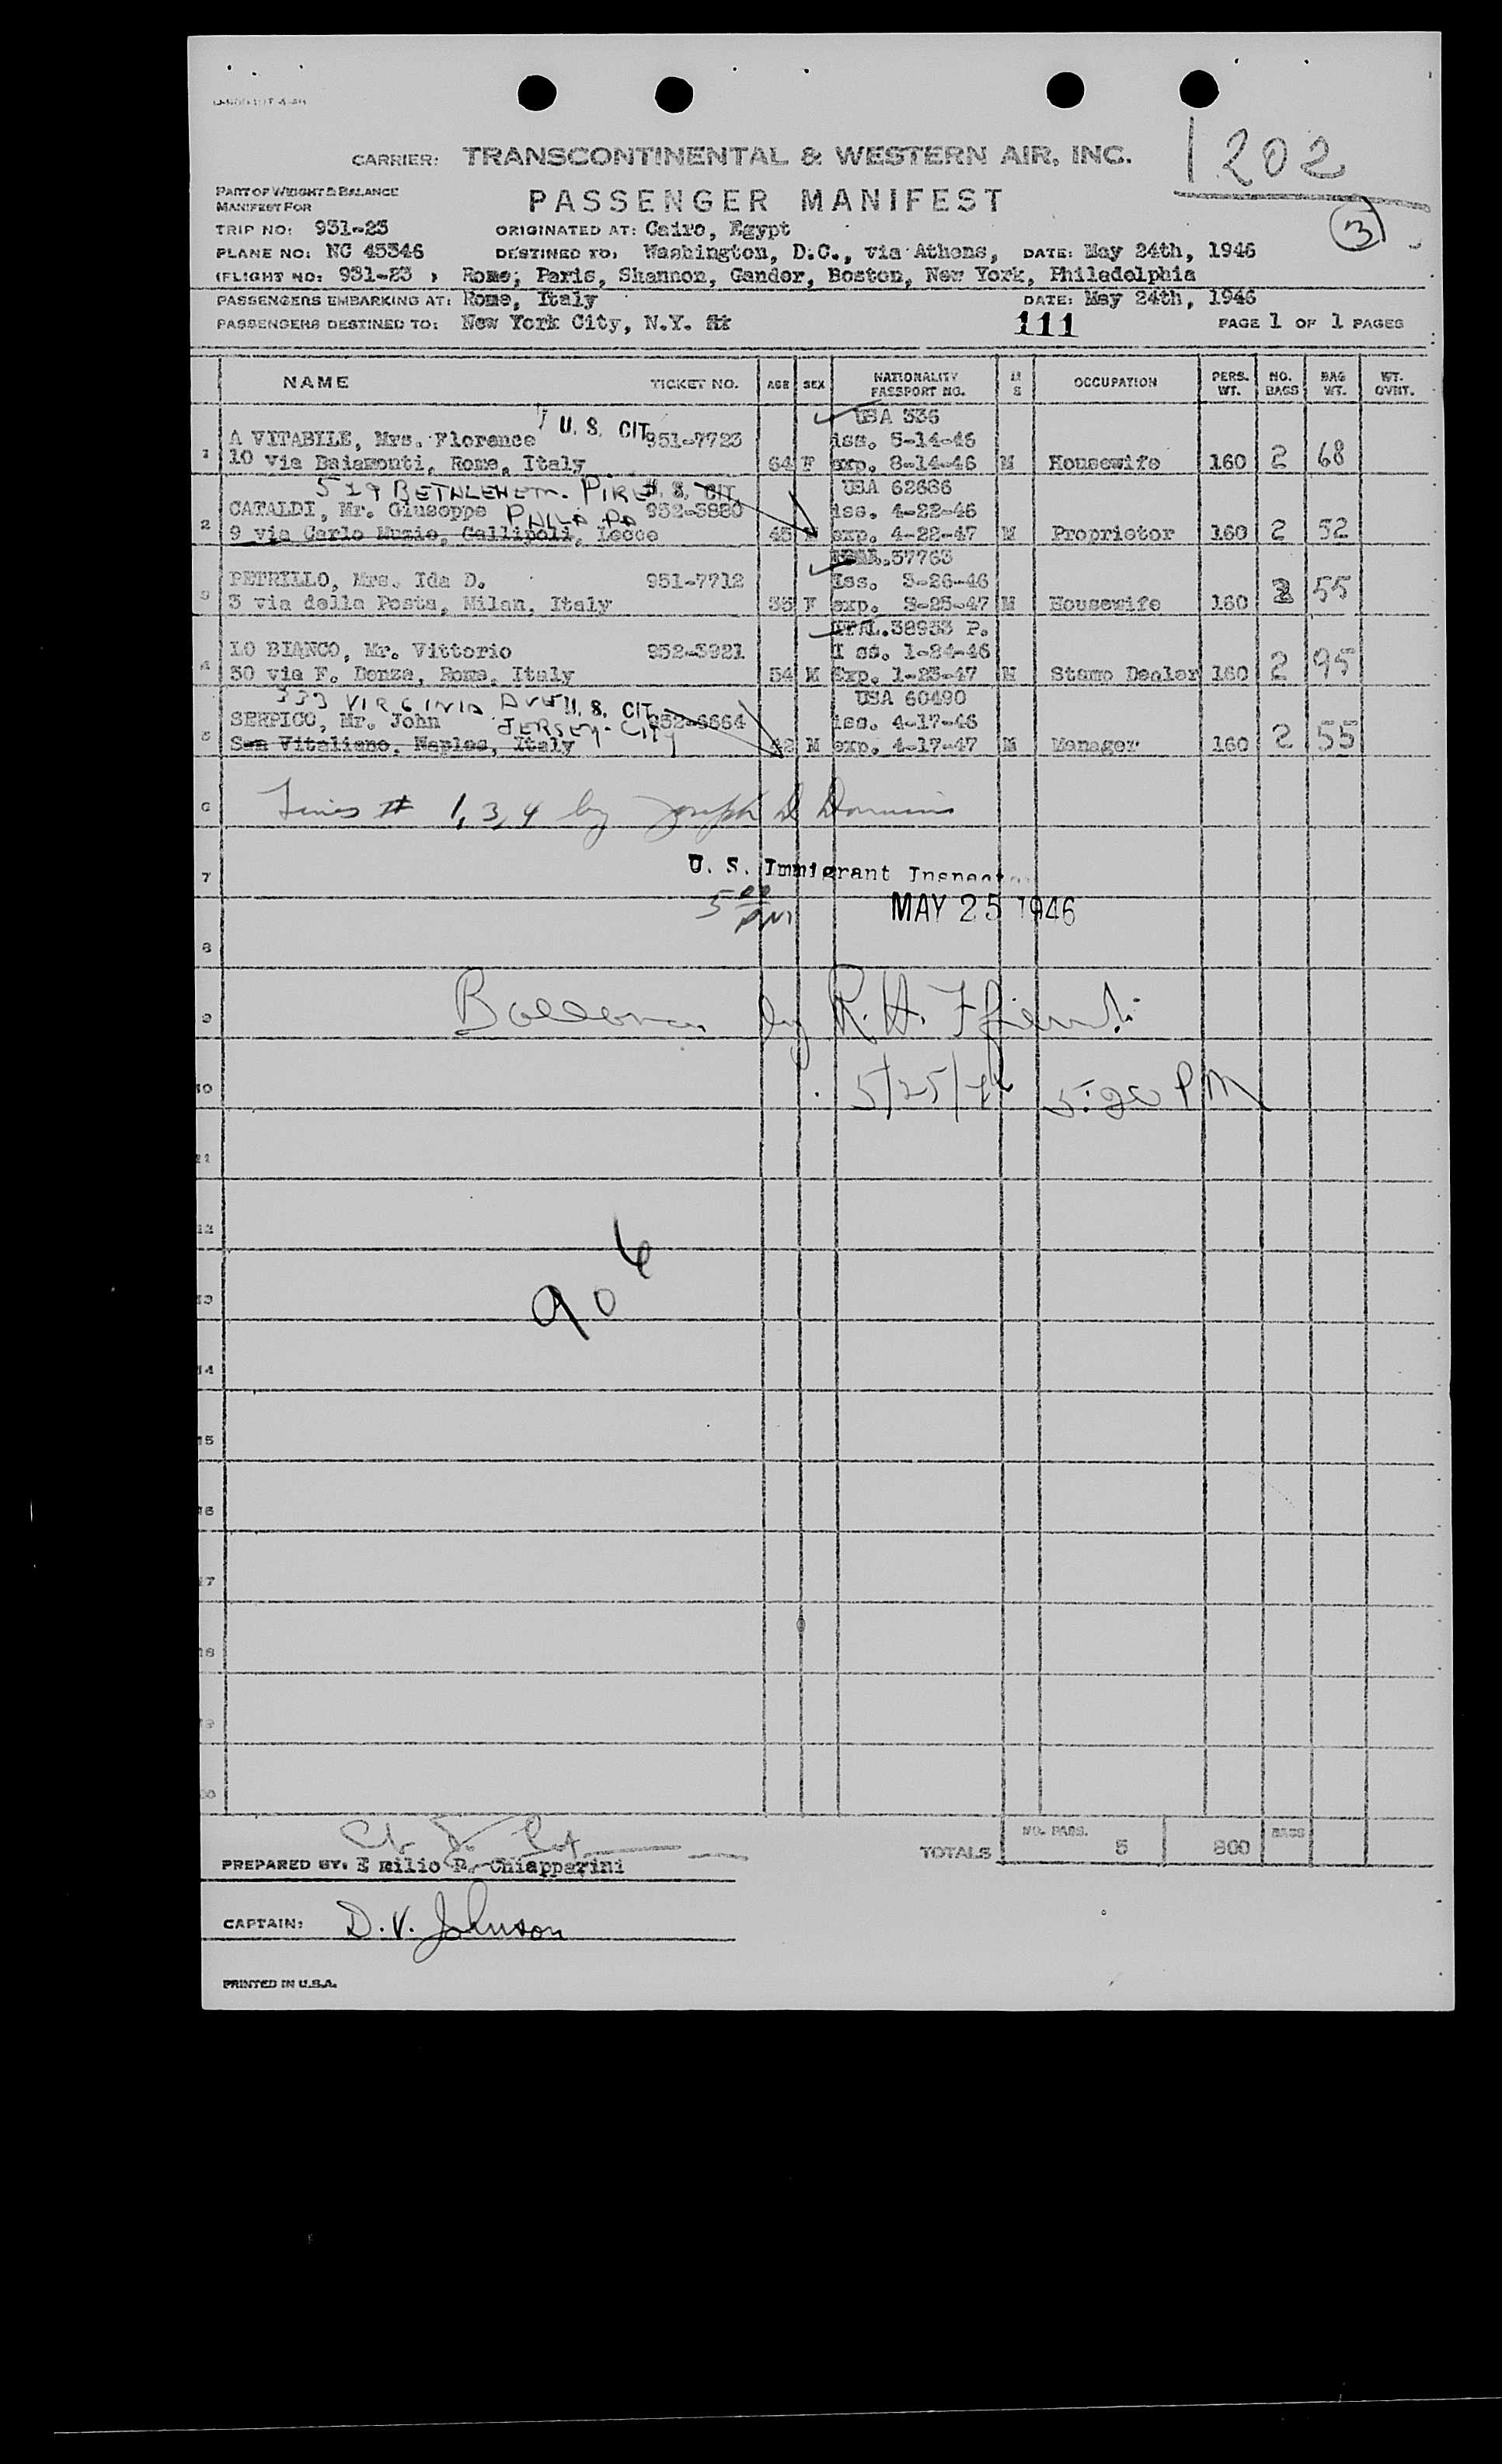 1202
CARRIER: TRANSCONTINENTAL & WESTERN AIR, INC.
PART OF WEIGHT & BALANCE
MANIFEST FOR
PASSENGER MANIFEST
3
TRIP NO: 931-23 ORIGINATED AT: Cairo, Egypt
PLANE NO: NC 45346 DESTINED TO: Washington, D.C., via Athens, DATE: May 24th, 1946
(FLIGHT NO: 931-23 ) Rome, Paris, Shannon, Gander, Boston, New York, Philadelphia
PASSENGERS EMBARKING AT: Rome, Italy DATE: May 24th, 1946
PASSENGERS DESTINED TO: New York City, N.Y. 111 PAGE 1 OF 1 PAGES
NAME TICKET NO. AGE SEX NATIONALITY PASSPORT NO. M S OCCUPATION PERS. WT. NO. BAGS BAG WT. WT. OVHT.
U. S. CIT. USA 336
A VITABILE, Mrs. Florence 951-7723 iss. 5-14-46
1 10 via Baiamonti, Rome, Italy 64 F exp. 8-14-46 M Housewife 160 2 68
519 BETHLEHEM. PIKE U. S. CIT. USA 62686
CATALDI, Mr. Giuseppe PHILA PA 952-3880 iss. 4-22-46
2 9 via Carlo Muzio, Gallipoli, Lecce 45 M exp. 4-22-47 M Proprietor 160 2 52
37763
PETRILLO, Mrs. Ida D. 951-7712 Iss. 3-26-46
3 3 via della Posta, Milan, Italy 33 F exp. 3-25-47 M Housewife 160 2 55
ITAL.38933 P.
LO BIANCO, Mr. Vittorio 952-3921 I ss. 1-24-46
4 30 via F. Denza, Rome, Italy 54 M Exp. 1-23-47 M Stamp Dealer 160 2 95
333 VIRGINIA AVE U. S. CIT. USA 60490
SERPICO, Mr. John JERSEY-CITY 952-6664 iss. 4-17-46
5 San Vitaliano, Naples, Italy 42 M exp. 4-17-47 M Manager 160 2 55
6 Lines # 1, 3, 4 by Joseph D
7 U. S. Immigrant Inspector
5 00 PM MAY 25 1946
8
9 by R. H.
10 5/25/46 5:20 PM
11
12
13
906
14
15
16
17
18
19
20
TOTALS NO. PASS. 5 800 BAGS
PREPARED BY: E milio R. Chiapparini
CAPTAIN: D. V. Johnson
PRINTED IN U.S.A.